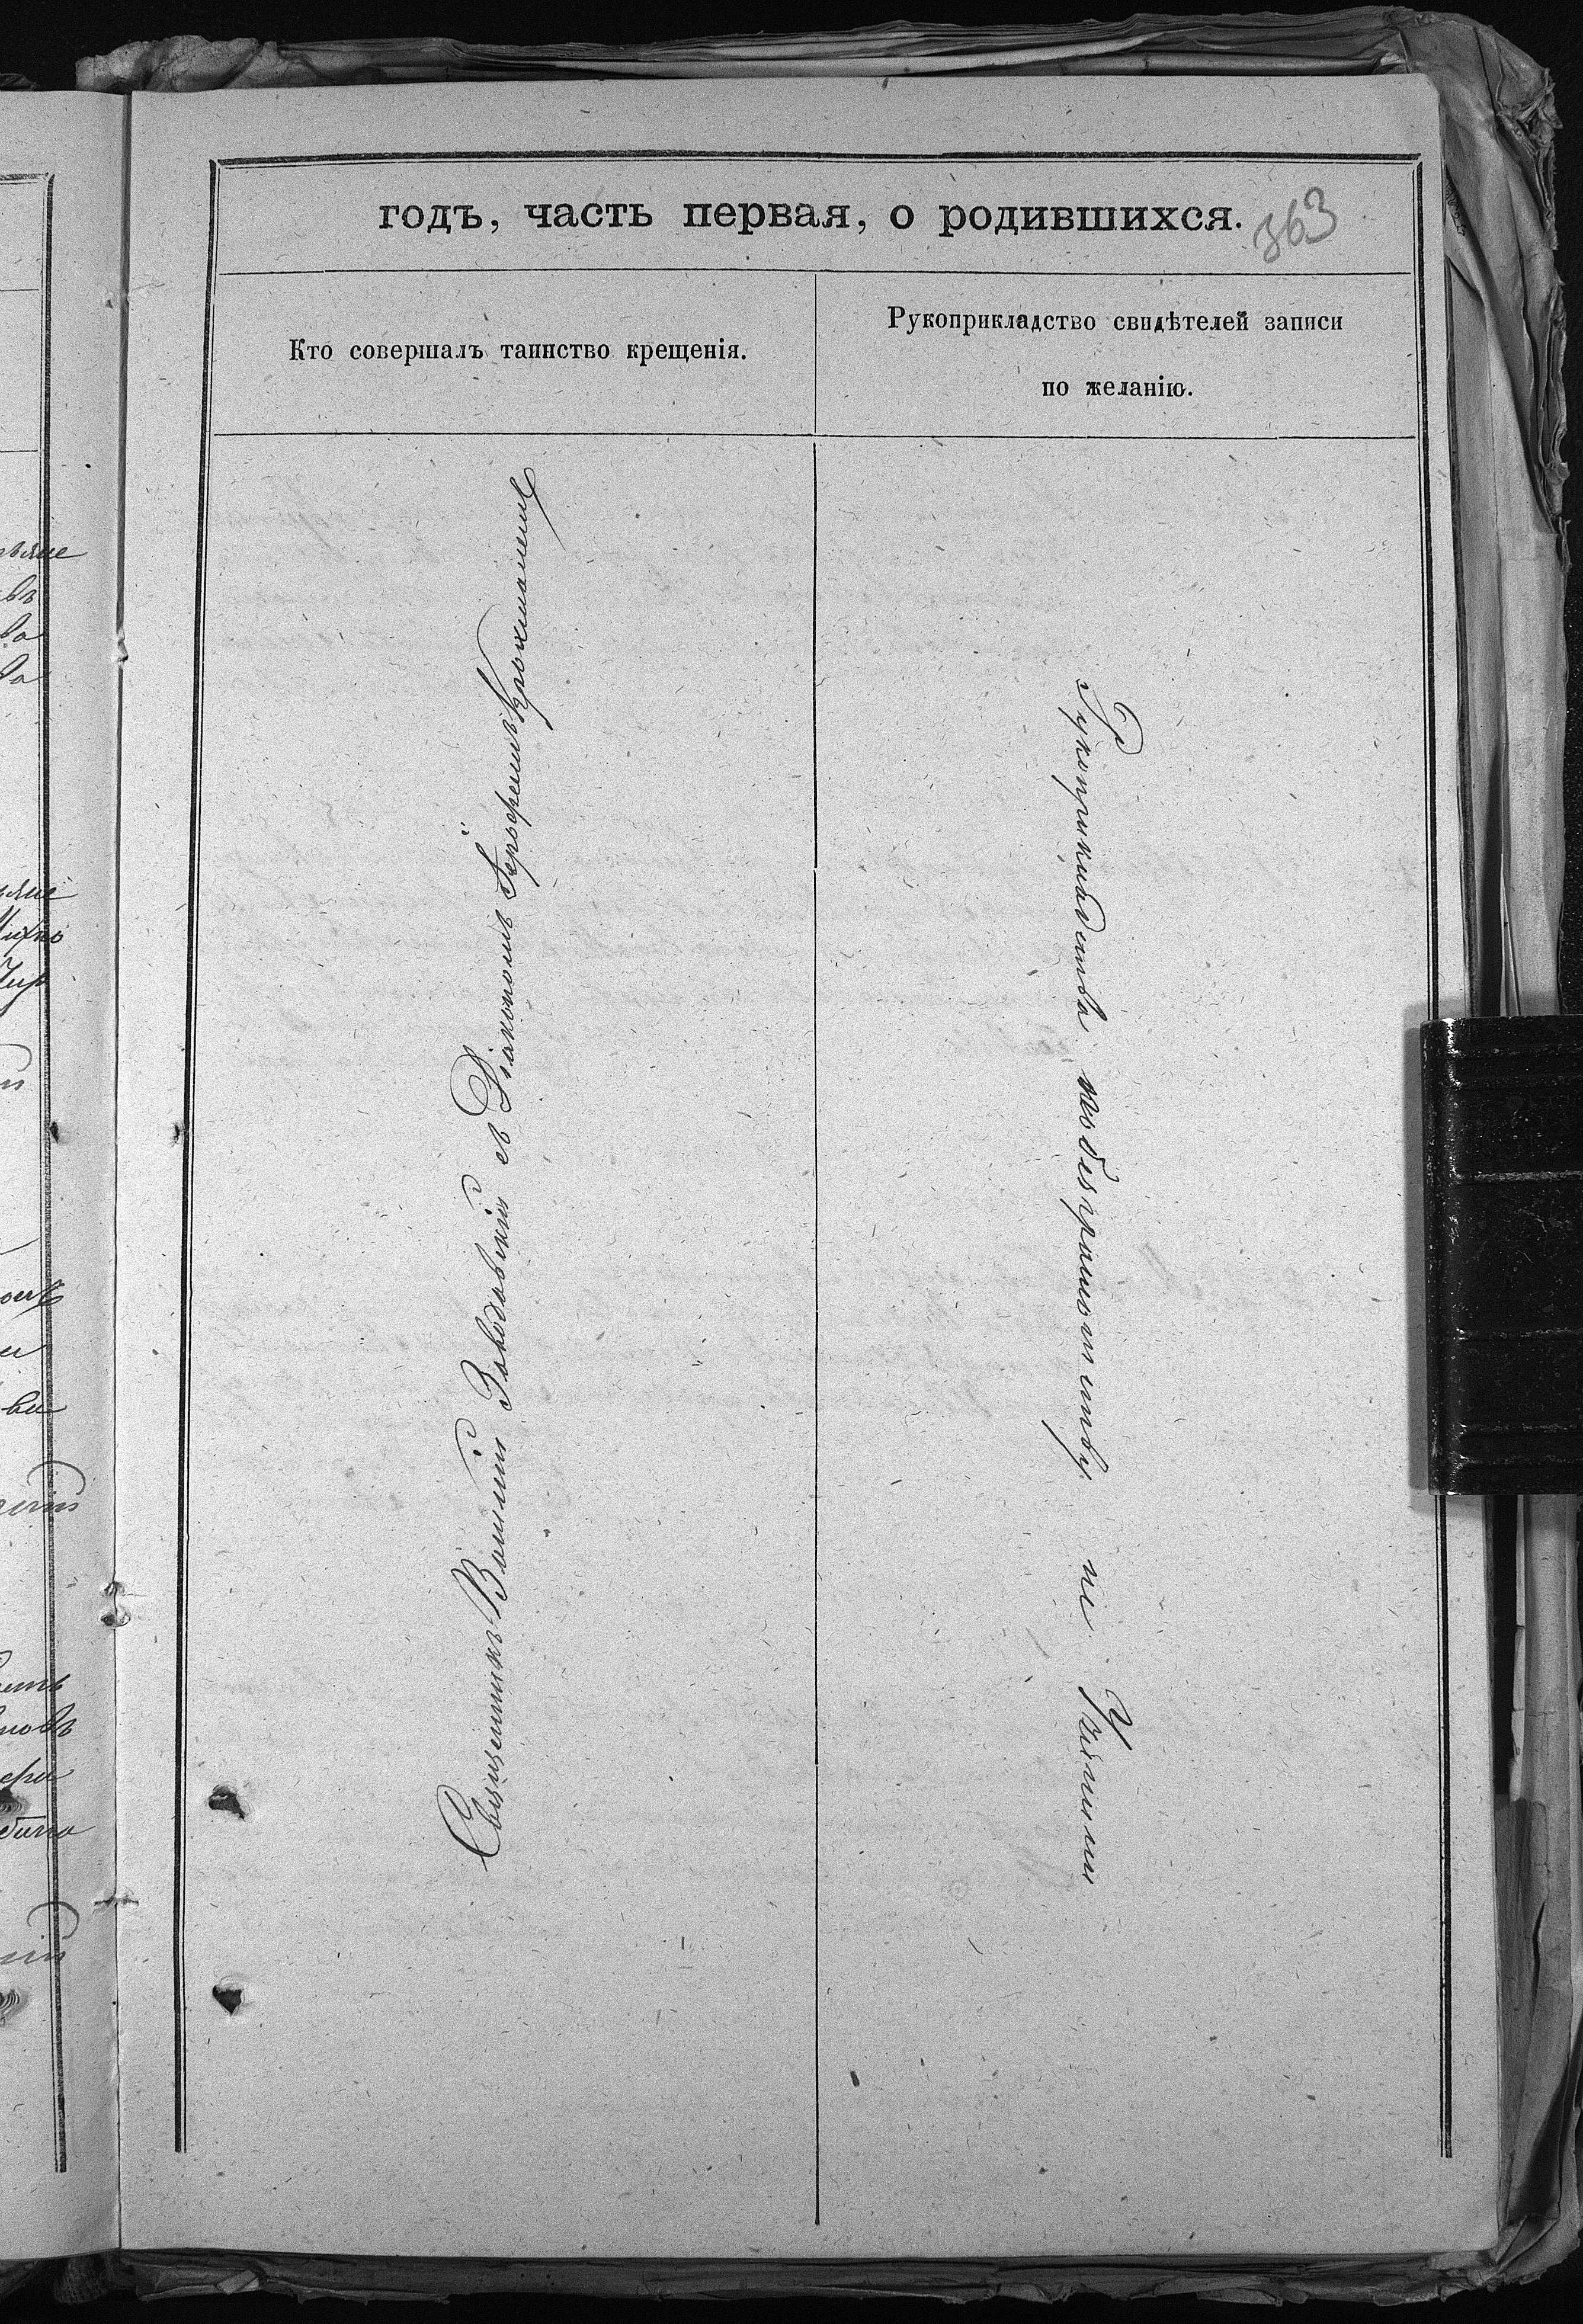 годъ, часть первая, о родившихся.
363
Кто совершалъ таинство крещенія.
Рукоприкладство свидѣтелей записи
по желанію.
Священникъ Василій Заводовскій съ Діакономъ Іерофеемъ
Рукоприкладства по безграмотству не учинили